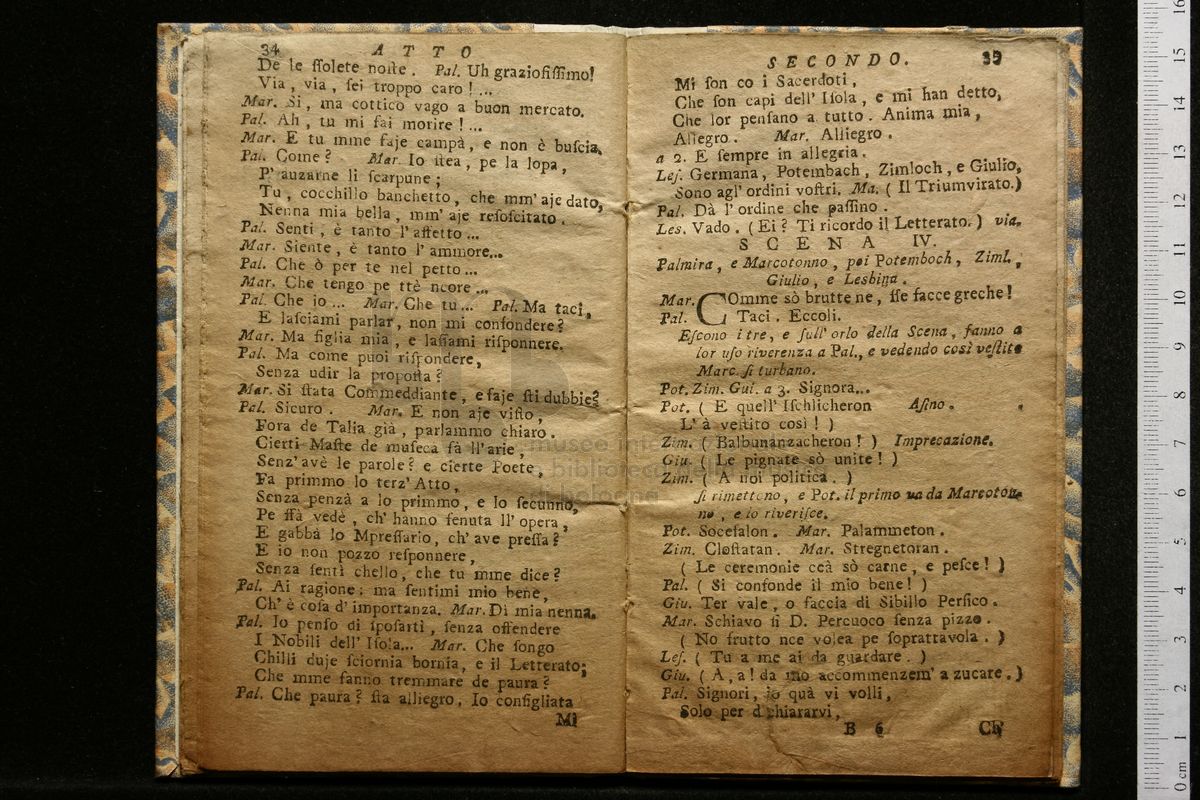 34 ATTO
De le ſſolete noſte. Pal. Uh grazioſiſſimo!
Via, via, ſei troppo caro!...
Mar. Si, ma cottico vago a buon mercato.
Pal. Ah, tu mi fai morire!...
Mar. E tu mme faje campà, e non è buſcia.
Pal. Come? Mar. Io ſtea, pe la lopa,
P' auzarne li ſcarpune;
Tu, cocchillo banchetto, che mm' aje dato,
Nenna mia bella, mm' aje reſoſcitato.
Pal. Senti, è tanto l' affetto...
Mar. Siente, è tanto l' ammore...
Pal. Che ò per te nel petto...
Mar. Che tengo pe ttè ncore...
Pal. Che io... Mar. Che tu... Pal. Ma taci,
E laſciami parlar, non mi confondere?
Mar. Ma figlia mia, e laſſami riſponnere.
Pal. Ma come puoi riſpondere,
Senza udir la propoſta?
Mar. Si ſtata Commeddiante, e faje ſti dubbie?
Pal. Sicuro. Mar. E non aje viſto,
Fora de Talia già, parlammo chiaro.
Cierti Maſte de muſeca fà ll'arie,
Senz' avè le parole? e cierte Poete,
Fa primmo lo terz' Atto,
Senza penzà a lo primmo, e lo ſecunno,
Pe ffà vedè, ch' hanno fenuta ll' opera,
E gabbà lo Mpreſſario, ch' ave preſſa?
E io non pozzo reſponnere,
Senza ſentì chello, che tu mme dice?
Pal. Ai ragione: ma ſentimi mio bene,
Ch' è coſa d' importanza. Mar. Dì mia nenna.
Pal. Io penſo di ſpoſarti, ſenza offendere
I Nobili dell' Iſola... Mar. Che ſongo
Chilli duje ſciornia bornia, e il Letterato;
Che mme fanno tremmare de paura?
Pal. Che paura? ſta alliegro. Io conſigliata
Mi
SECONDO. 35
Mi ſon co i Sacerdoti,
Che ſon capi dell' Iſola, e mi han detto,
Che lor penſano a tutto. Anima mia,
Allegro. Mar. Alliegro.
a 2. E ſempre in allegria.
Leſ. Germana, Potembach, Zimloch, e Giulio,
Sono agl' ordini voſtri. Ma. ( Il Triumvirato.)
Pal. Dà l' ordine che paſſino.
Les. Vado. (Ei? Ti ricordo il Letterato.) via.
SCENA IV.
Palmira, e Marcotonno, poi Potemboch, Ziml.,
Giulio, e Lesbina.
Mar. COmme sò brutte ne, ſſe facce greche!
Pal. Taci. Eccoli.
Eſcono i tre, e ſull' orlo della Scena, fanno a
lor uſo riverenza a Pal., e vedendo così veſtito
Marc. ſi turbano.
Pot. Zim. Gui. a 3. Signora...
Pot. ( E quell' Iſchlicheron Aſino.
L' à veſtito così! )
Zim. ( Balbunanzacheron! ) Imprecazione.
Giu. ( Le pignate sò unite! )
Zim. ( A noi politica. )
ſi rimettono, e Pot. il primo va da Marcoton-
no, e lo riveriſce.
Pot. Soceſalon. Mar. Palammeton.
Zim. Cloſtatan. Mar. Stregnetoran.
( Le ceremonie ccà sò carne, e peſce! )
Pal. ( Si confonde il mio bene! )
Giu. Ter vale, o faccia di Sibillo Perſico.
Mar. Schiavo ſi D. Percuoco ſenza pizzo.
( No frutto nce volea pe ſoprattavola. )
Leſ. ( Tu a me ai da guardare. )
Giu. ( A, a! da mo accommenzem' a zucare. )
Pal. Signori, io quà vi volli,
Solo per dichiararvi,
B 6 Ch'